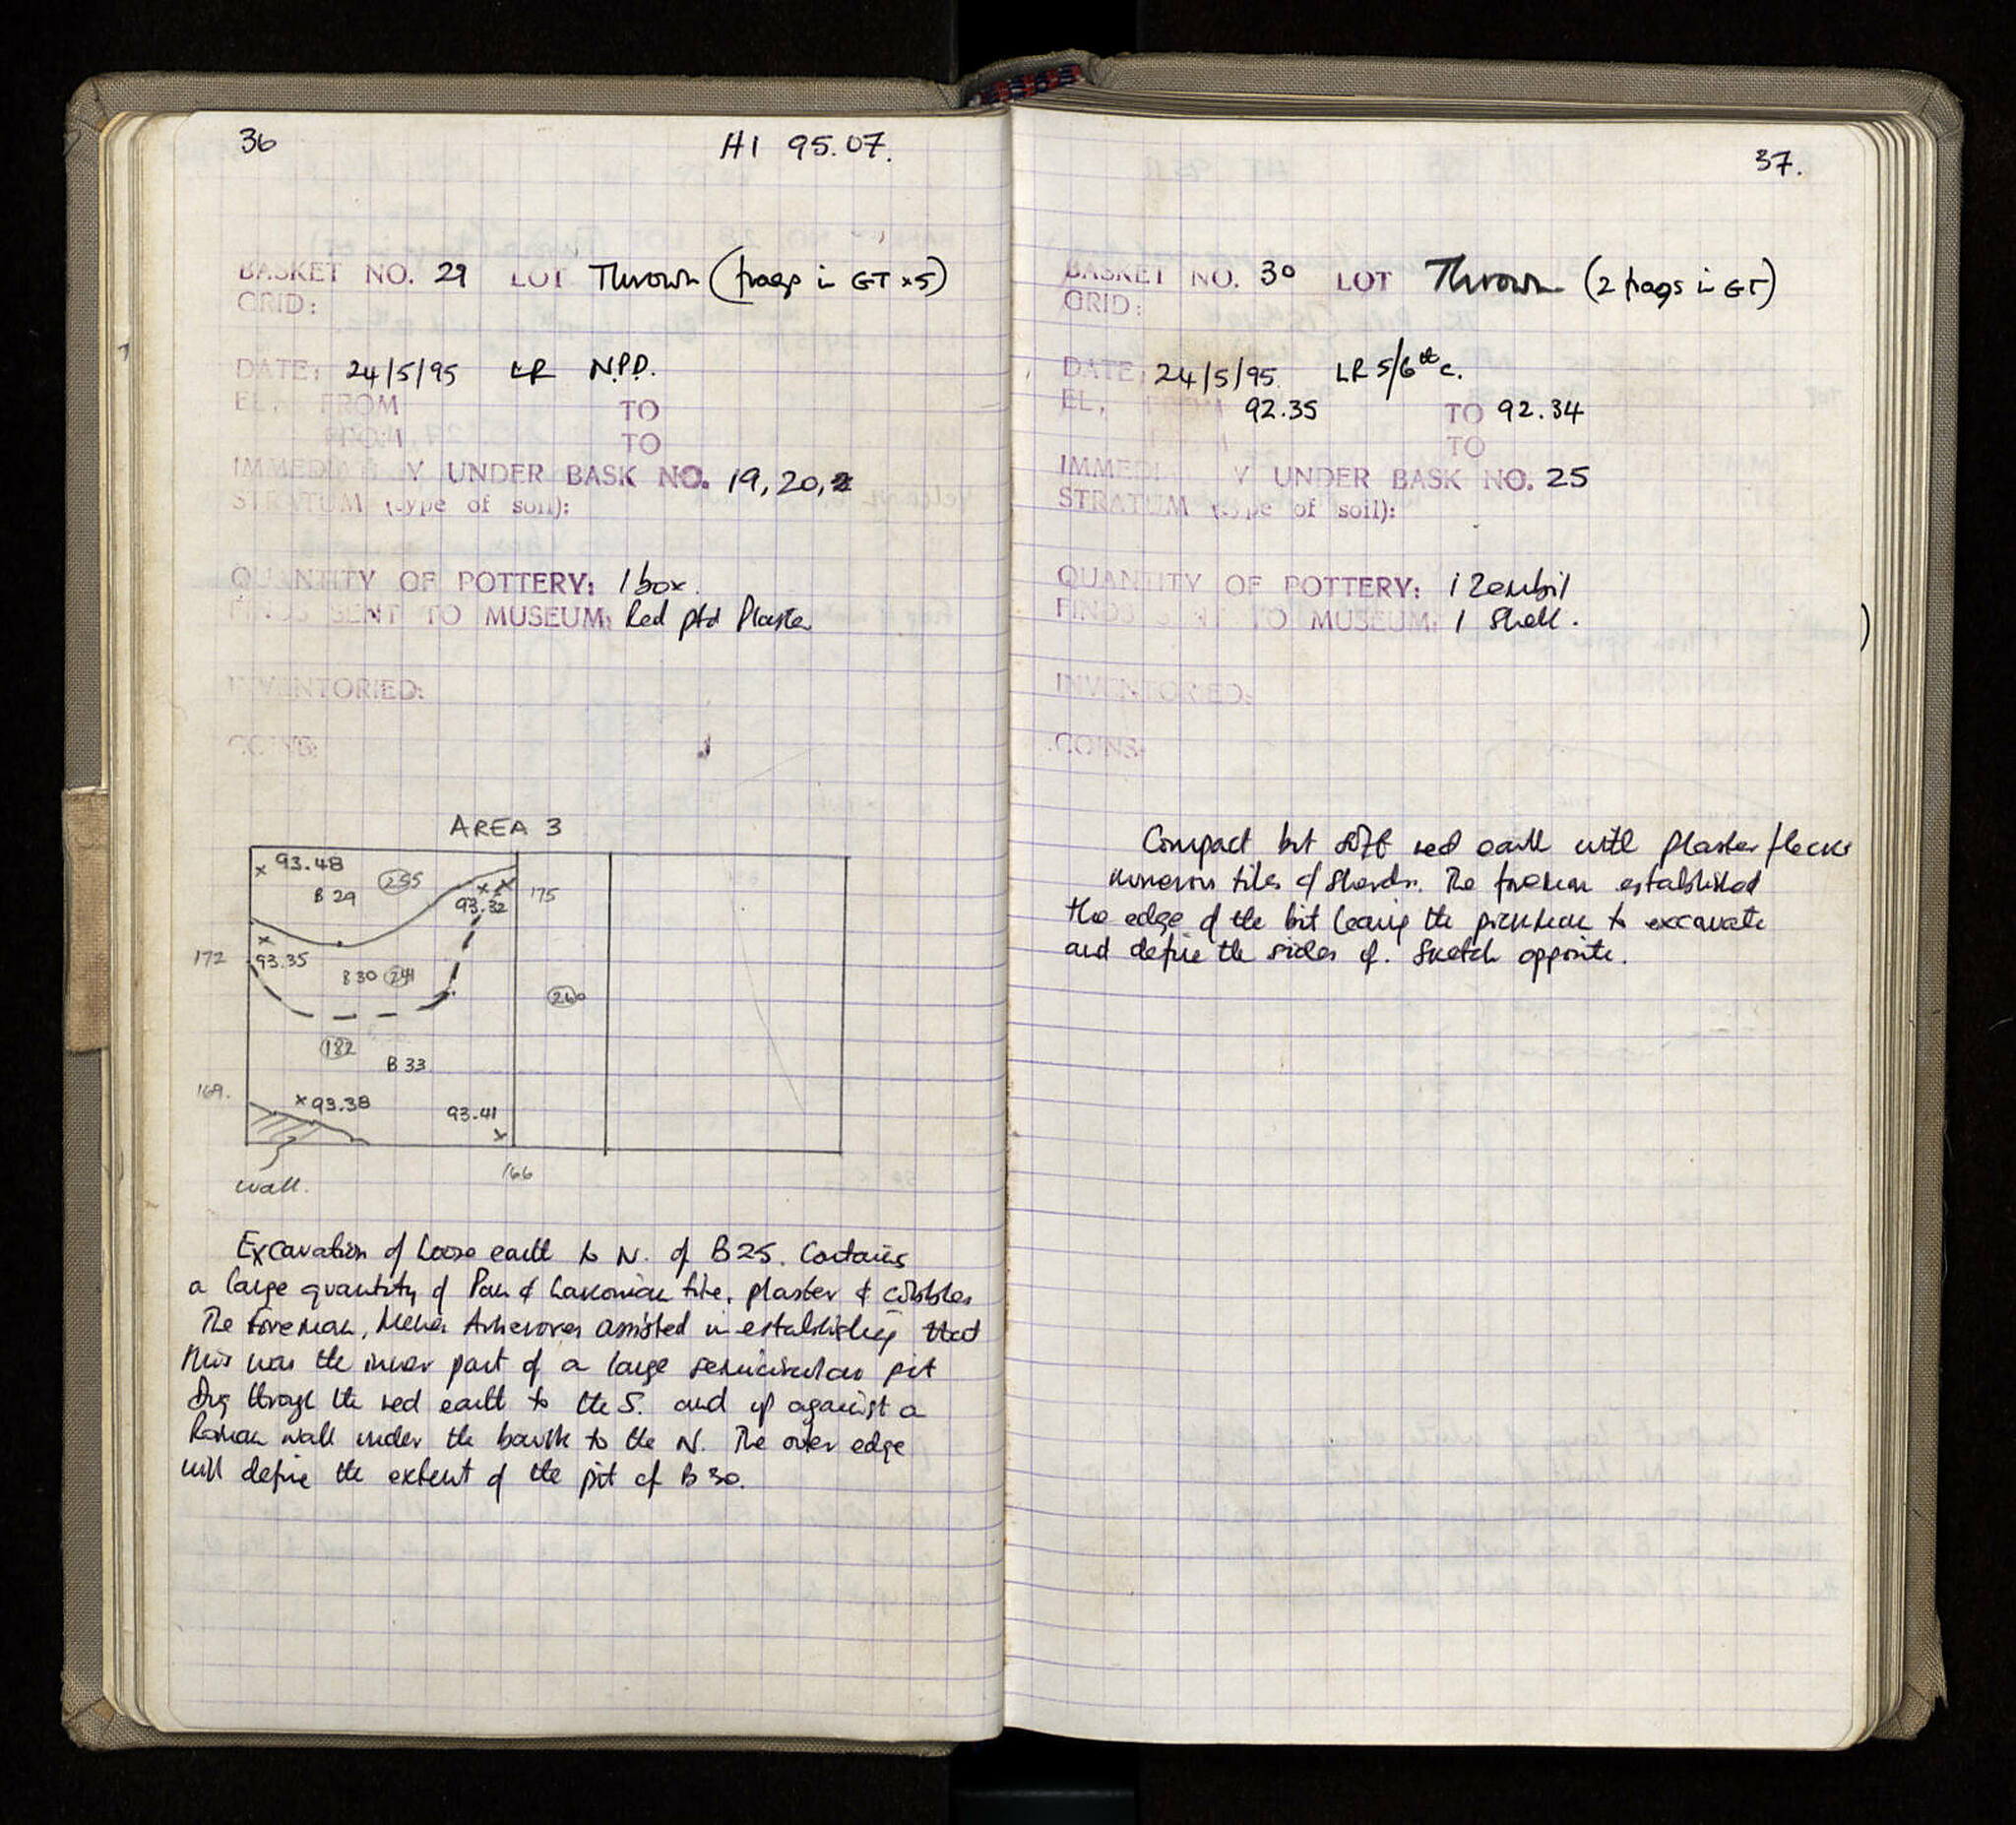 36 HI 95.07.
BASKET NO. 29 LOT Thrown (frags in GT x5)
GRID:
DATE: 24/5/95 LR N.P.D.
EL, FROM TO
FROM TO
IMMEDI Y UNDER BASK NO. 19, 20,
STRATUM (type of soil):
QUANTITY OF POTTERY: 1 box.
FINDS SENT TO MUSEUM: Red ptd Plaster
INVENTORIED:
COINS:
AREA 3
x 93.48
B 29 255
x x
93.32 175
x
172 93.35
B30 241
260
182
B 33
169.
x 93.38 93.41
x
166
wall.
Excavation of loose earth to N. of B25. Contains
a large quantity of Pan & Lakonian tile, plaster & cobbles
The foreman, assisted in establishing that
this was the inner part of a large semicircular pit
dug through the red earth to the S. and up against a
Roman wall under the baulk to the N. The outer edge
will define the extent of the pit cf B30.
37.
BASKET NO. 30 LOT Thrown (2 frags in GT)
GRID:
DATE: 24/5/95 LR 5/6th c.
EL, FROM 92.35 TO 92.34
TO
IMMEDI Y UNDER BASK NO. 25
STRATUM (type of soil):
QUANTITY OF POTTERY: 1 Zembil
FINDS SENT TO MUSEUM: 1 Shell.
INVENTORIED:
COINS:
Compact but soft red earth with plaster flecks
numerous tiles & sherds. The foreman established
the edge of the pit leaving the pickman to excavate
and define the sides cf. sketch opposite.